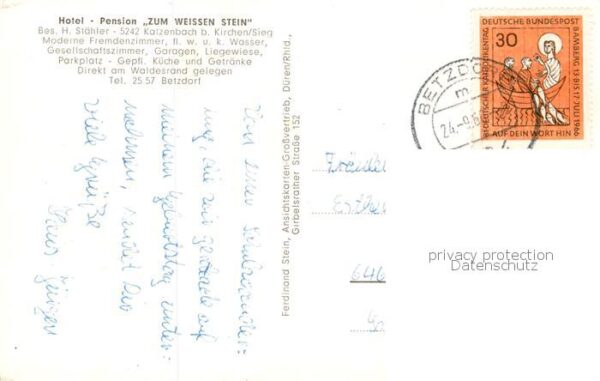 Hotel - Pension „ZUM WEISSEN STEIN"
Bes. H. Stähler - 5242 Katzenbach b. Kirchen/Sieg
Moderne Fremdenzimmer, fl. w. u. k. Wasser,
Gesellschaftszimmer, Garagen, Liegewiese,
Parkplatz - Gepfl. Küche und Getränke
Direkt am Waldesrand gelegen
Tel. 25 57 Betzdorf
Von einer
die wir gerade auf
meinem Geburtstag unter-
nehmen, sendet Dir
viele Grüße
Hans Jürgen
Ferdinand Stein, Ansichtskarten-Großvertrieb, Düren/Rhld.,
Girbelsrather Straße 152
DEUTSCHE BUNDESPOST
30
81. DEUTSCHER KATHOLIKENTAG
BAMBERG 13 BIS 17. JULI 1966
AUF DEIN WORT HIN
BETZDORF
m
24.-9.6
Fräulein
646
privacy protection
Datenschutz